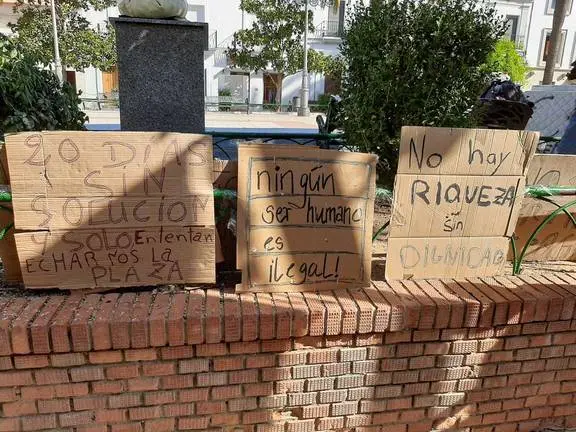 20 DÍAS
SIN
SOLUCIÓN
Y SOLO Ententan
ECHARNOS LA
PLAZA
ningún
ser humano
es
ilegal!
No hay
RIQUEZA
sin
DIGNIDAD